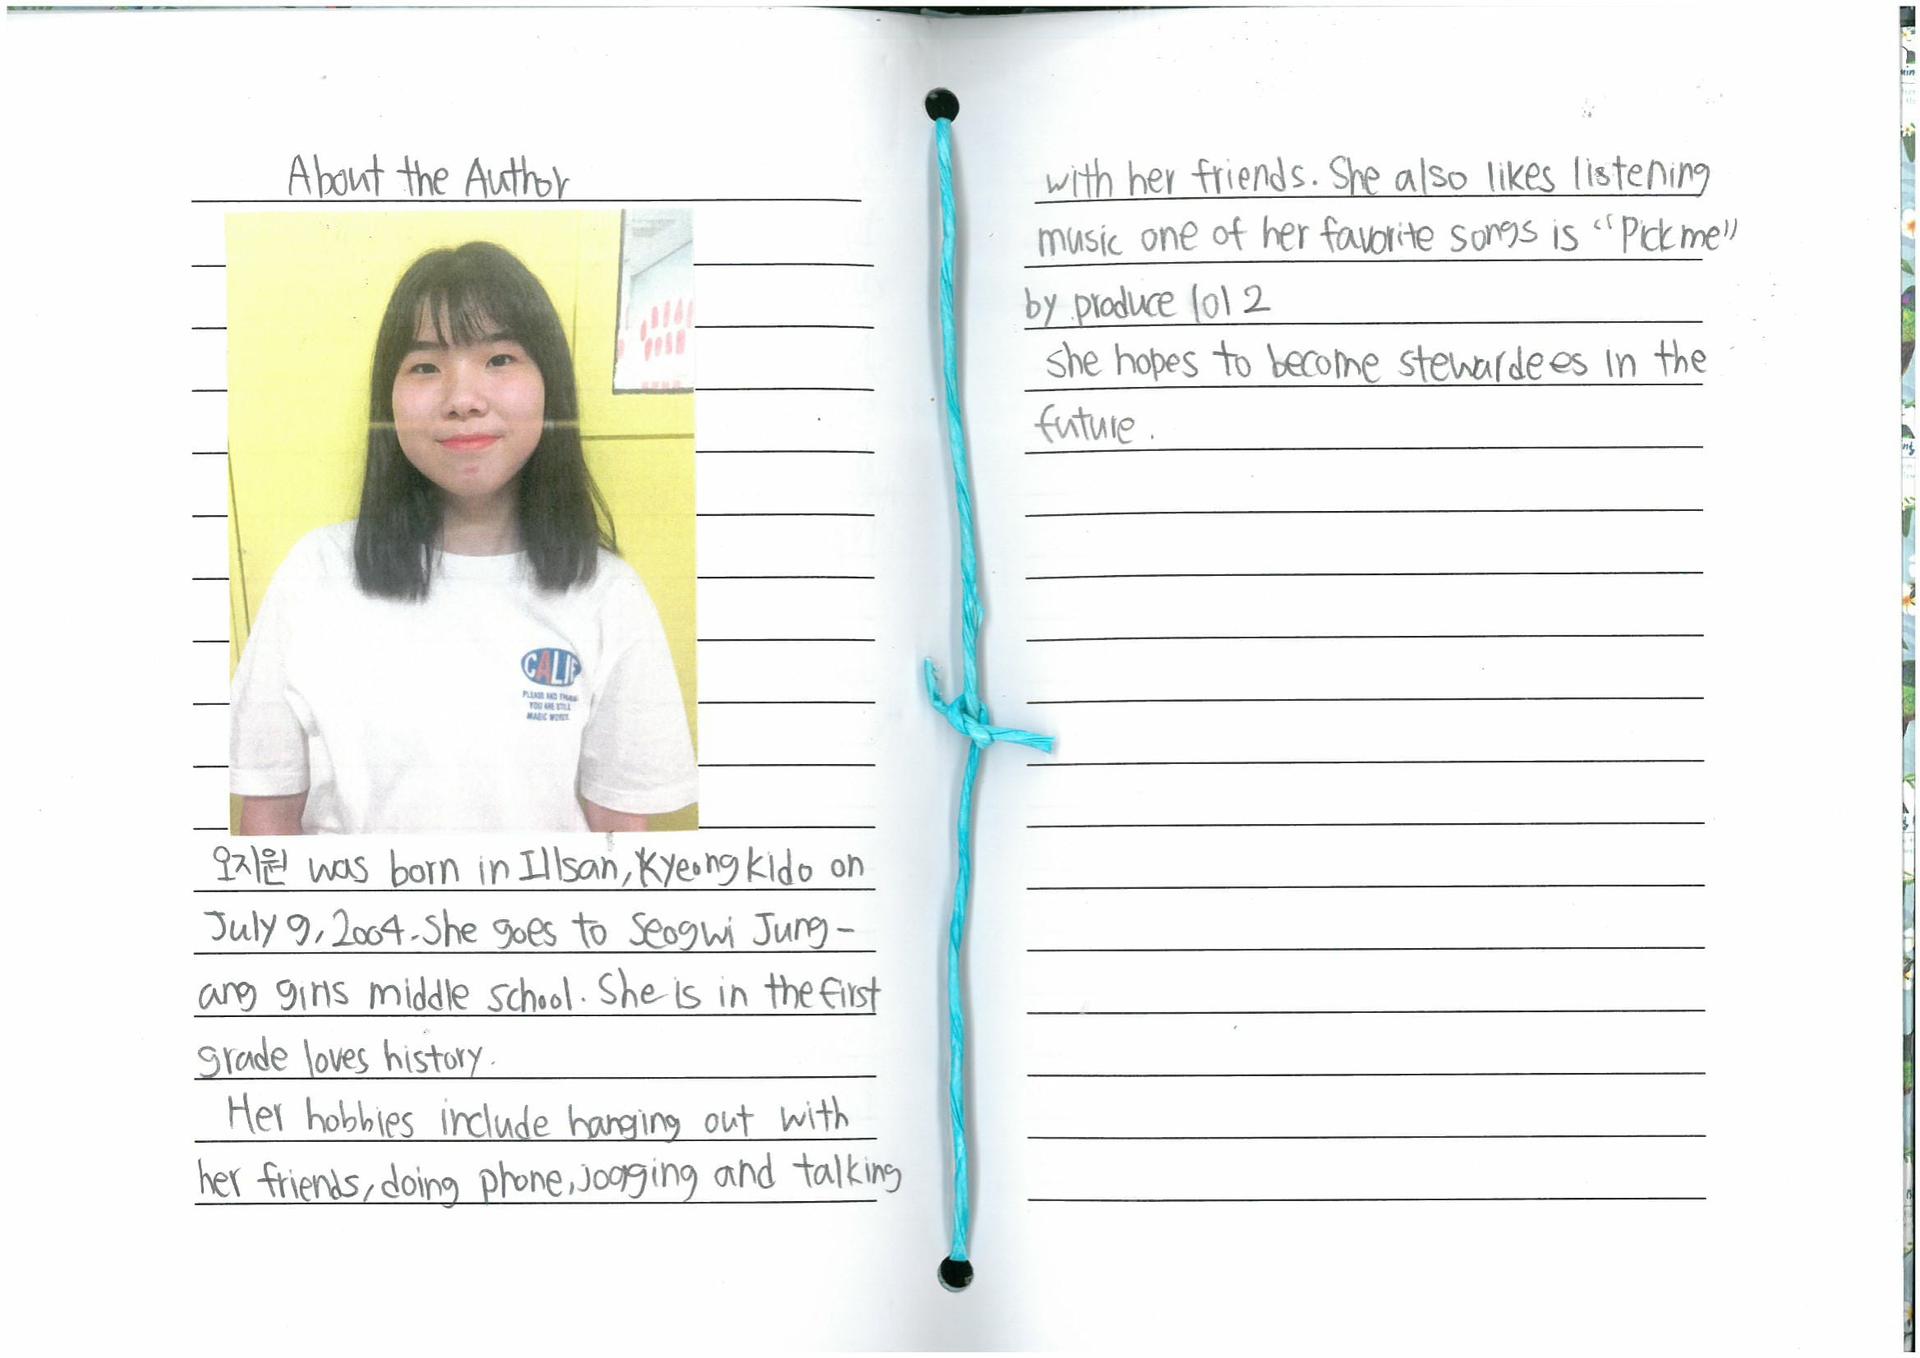 About the Author
CALIF
PLEASE AND THANK
YOU ARE STILL
MAGIC WORDS.
오지원 was born in Illsan, Kyeongkido on
July 9, 2004. She goes to Seogwi Jung-
ang girls middle school. She is in the first
grade loves history.
Her hobbies include hanging out with
her friends, doing phone, jogging and talking
with her friends. She also likes listening
music one of her favorite songs is "Pick me"
by produce 101 2
she hopes to become stewardees in the
future.